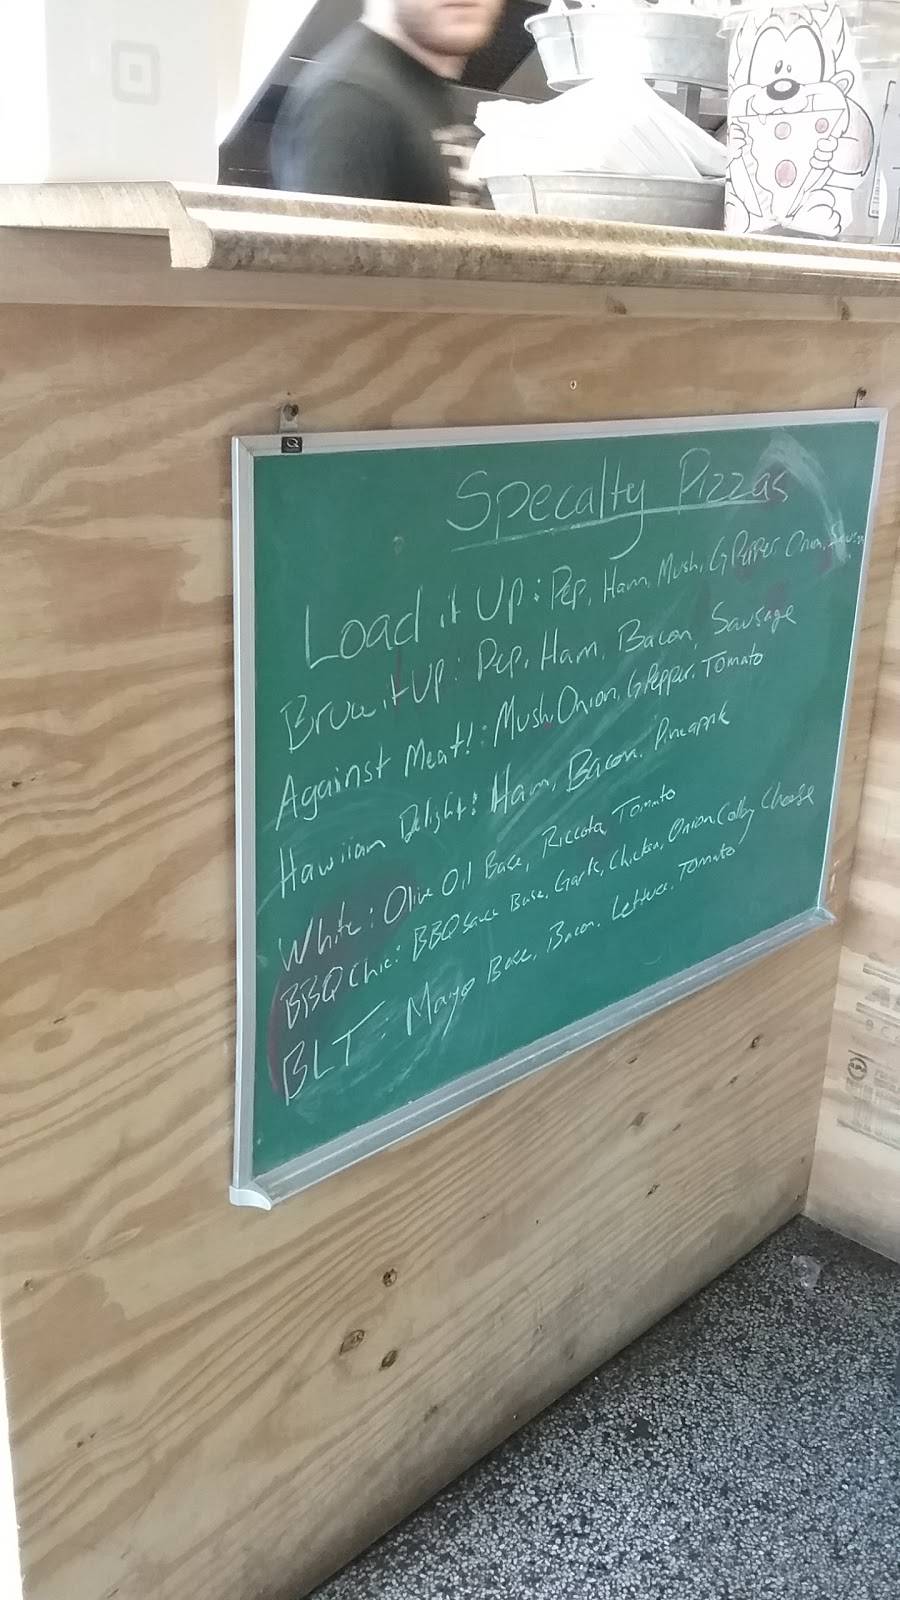 Specalty Pizzas
Load it Up: Pep, Ham, Mush, G Pepper, Onion,
it Up: Pep, Ham, Bacon, Sausage
Against Meat!: Mush, Onion, G Pepper, Tomato
Hawiian Delight: Ham, Bacon, Pineapple
White: Olive Oil Base, Riccota, Tomato
BBQ Chic: BBQ sauce Base, Garlic, Chicken, Onion, Colby Cheese
BLT: Mayo Base, Bacon, Lettuce, Tomato